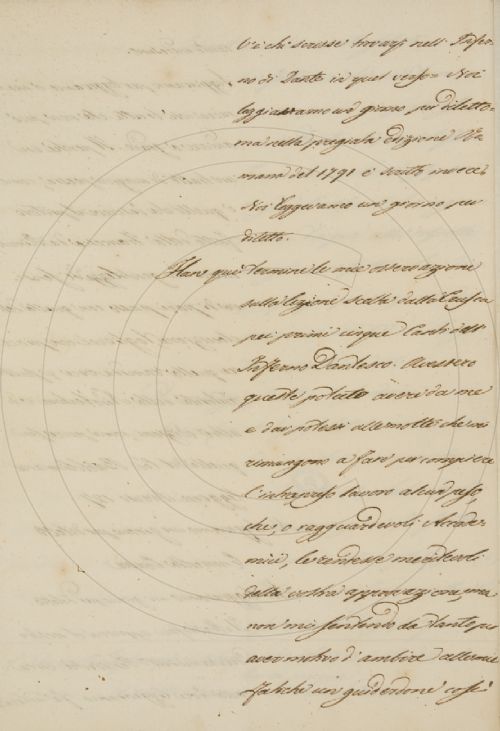 v'è chi scrisse trovarsi nell' Infer-
no di Dante in quel verso = Noi
leggiavamo un giorno per diletto =
ma nella pregiata Edizione Ro-
mana del 1791 è scritto invece:
Noi leggevamo un giorno per
diletto.
Han quì termine le mie osservazioni
sulla lezione scelta dalla Crusca
pei primi cinque Canti dell'
Inferno Dantesco. Avessero
queste potuto avere da me
e dar potessi alle molte che mi
rimangono a fare per compiere
l'intrapreso lavoro
che, o ragguardevoli Accade-
mici, le rendesse meritevoli
della vostra approvazione, ma
non mi sentendo da tanto per
aver motivo d'ambire alle mie
fatiche un guiderdone così